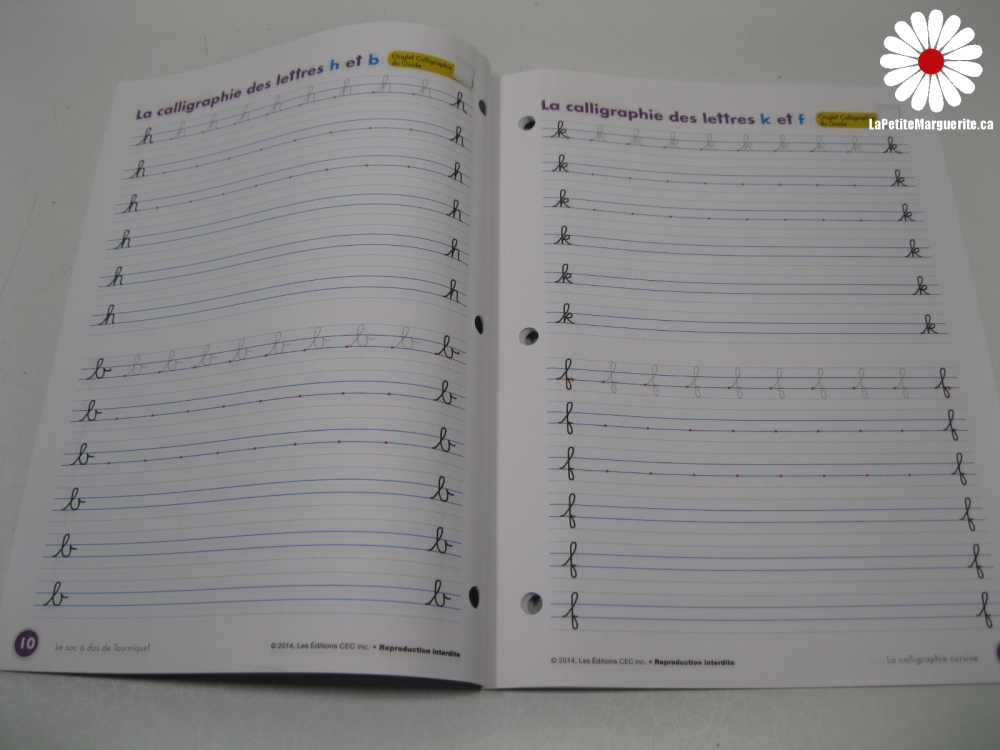 La calligraphie des lettres h et b
Onglet Calligraphie
du Guide
h h h h h h h h h h
h h
h h
h h
h h
h h
b b b b b b b b b b
b b
b b
b b
b b
b b
10
Le sac à dos de Tourniquet
© 2014, Les Éditions CEC inc. • Reproduction interdite
La calligraphie des lettres k et f
Onglet Calligraphie
du Guide
k k k k k k k k k k
k k
k k
k k
k k
k k
f f f f f f f f f f
f f
f f
f f
f f
f f
© 2014, Les Éditions CEC inc. • Reproduction interdite
La calligraphie cursive
LaPetiteMarguerite.ca